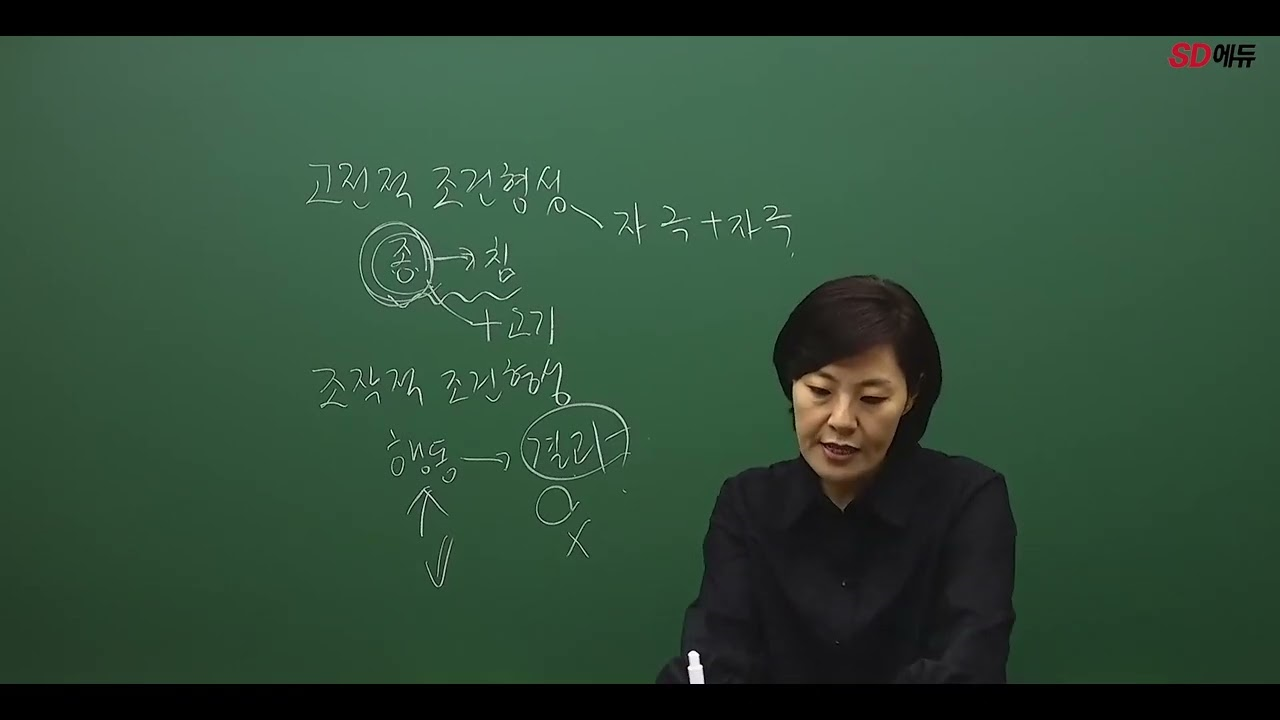 SD에듀
고전적 조건형성
자극+자극
종→침
+고기
조작적 조건형성
행동→결과
↑ O
↓ X